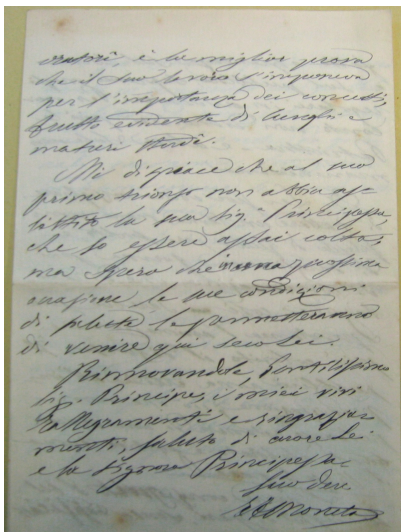 oratori, è la miglior prova
che il Suo lavoro s'imponeva
per l'importanza dei concetti,
frutto evidente di lunghi e
maturi studi.
Mi dispiace che al suo
primo trionfo non abbia as-
sistito la sua Sig.ra Principessa,
che so essere assai colta;
ma spero che in una prossima
occasione le sue condizioni
di salute le permetteranno
di venire qui seco Lei.
Rinnovandole, Gentilissimo
Sig. Principe, i miei vivi
rallegramenti e ringrazia-
menti, saluto di cuore Lei
e la Signora Principessa
Suo dev
E T Moneta